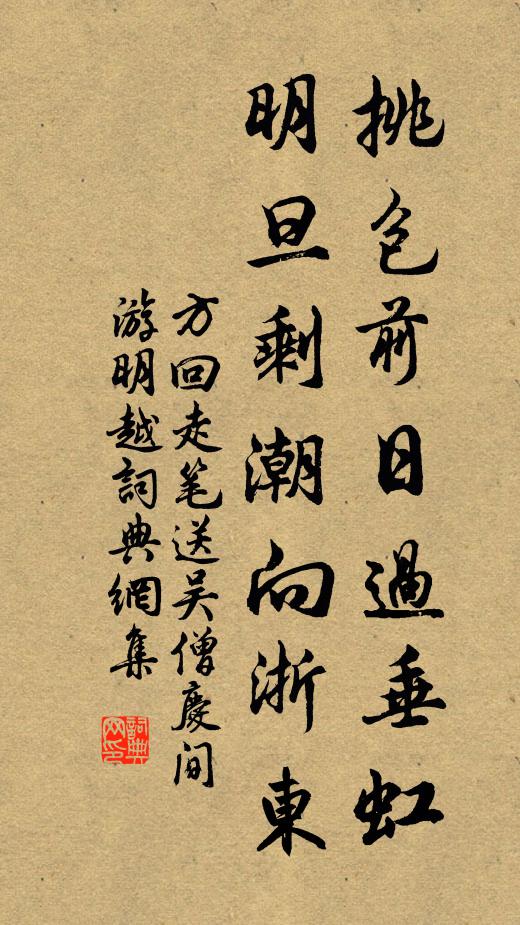 挑包前日過垂虹
明旦剩潮向浙東
方回走笔送吴僧慶间
游明越詞典網集
詞典網印